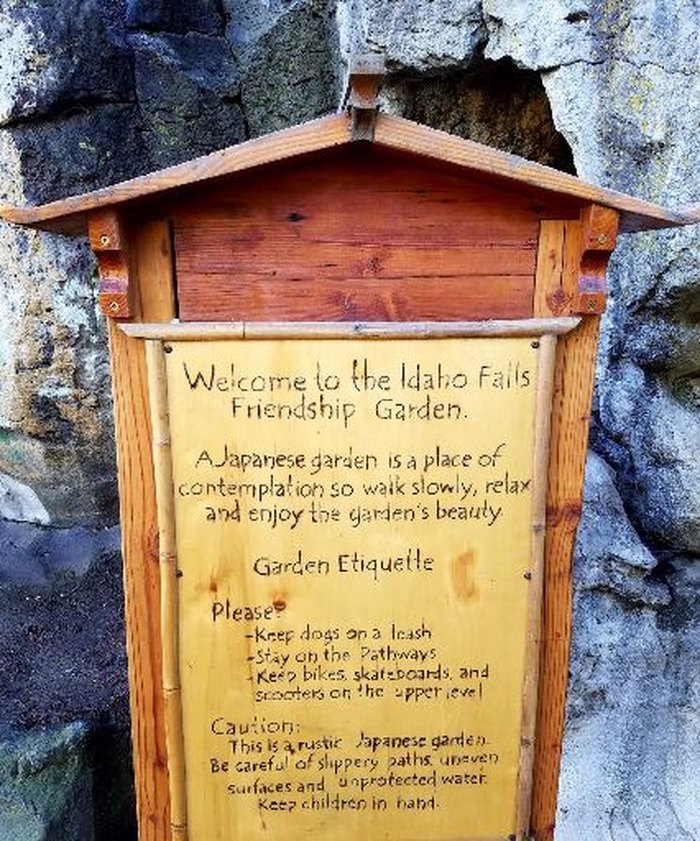 Welcome to the Idaho Falls
Friendship Garden.
A Japanese garden is a place of
contemplation so walk slowly, relax
and enjoy the garden's beauty.
Garden Etiquette
Please:
-Keep dogs on a leash
-Stay on the Pathways
-Keep bikes, skateboards, and
scooters on the upper level
Caution:
This is a rustic Japanese garden.
Be careful of slippery paths, uneven
surfaces and unprotected water.
Keep children in hand.